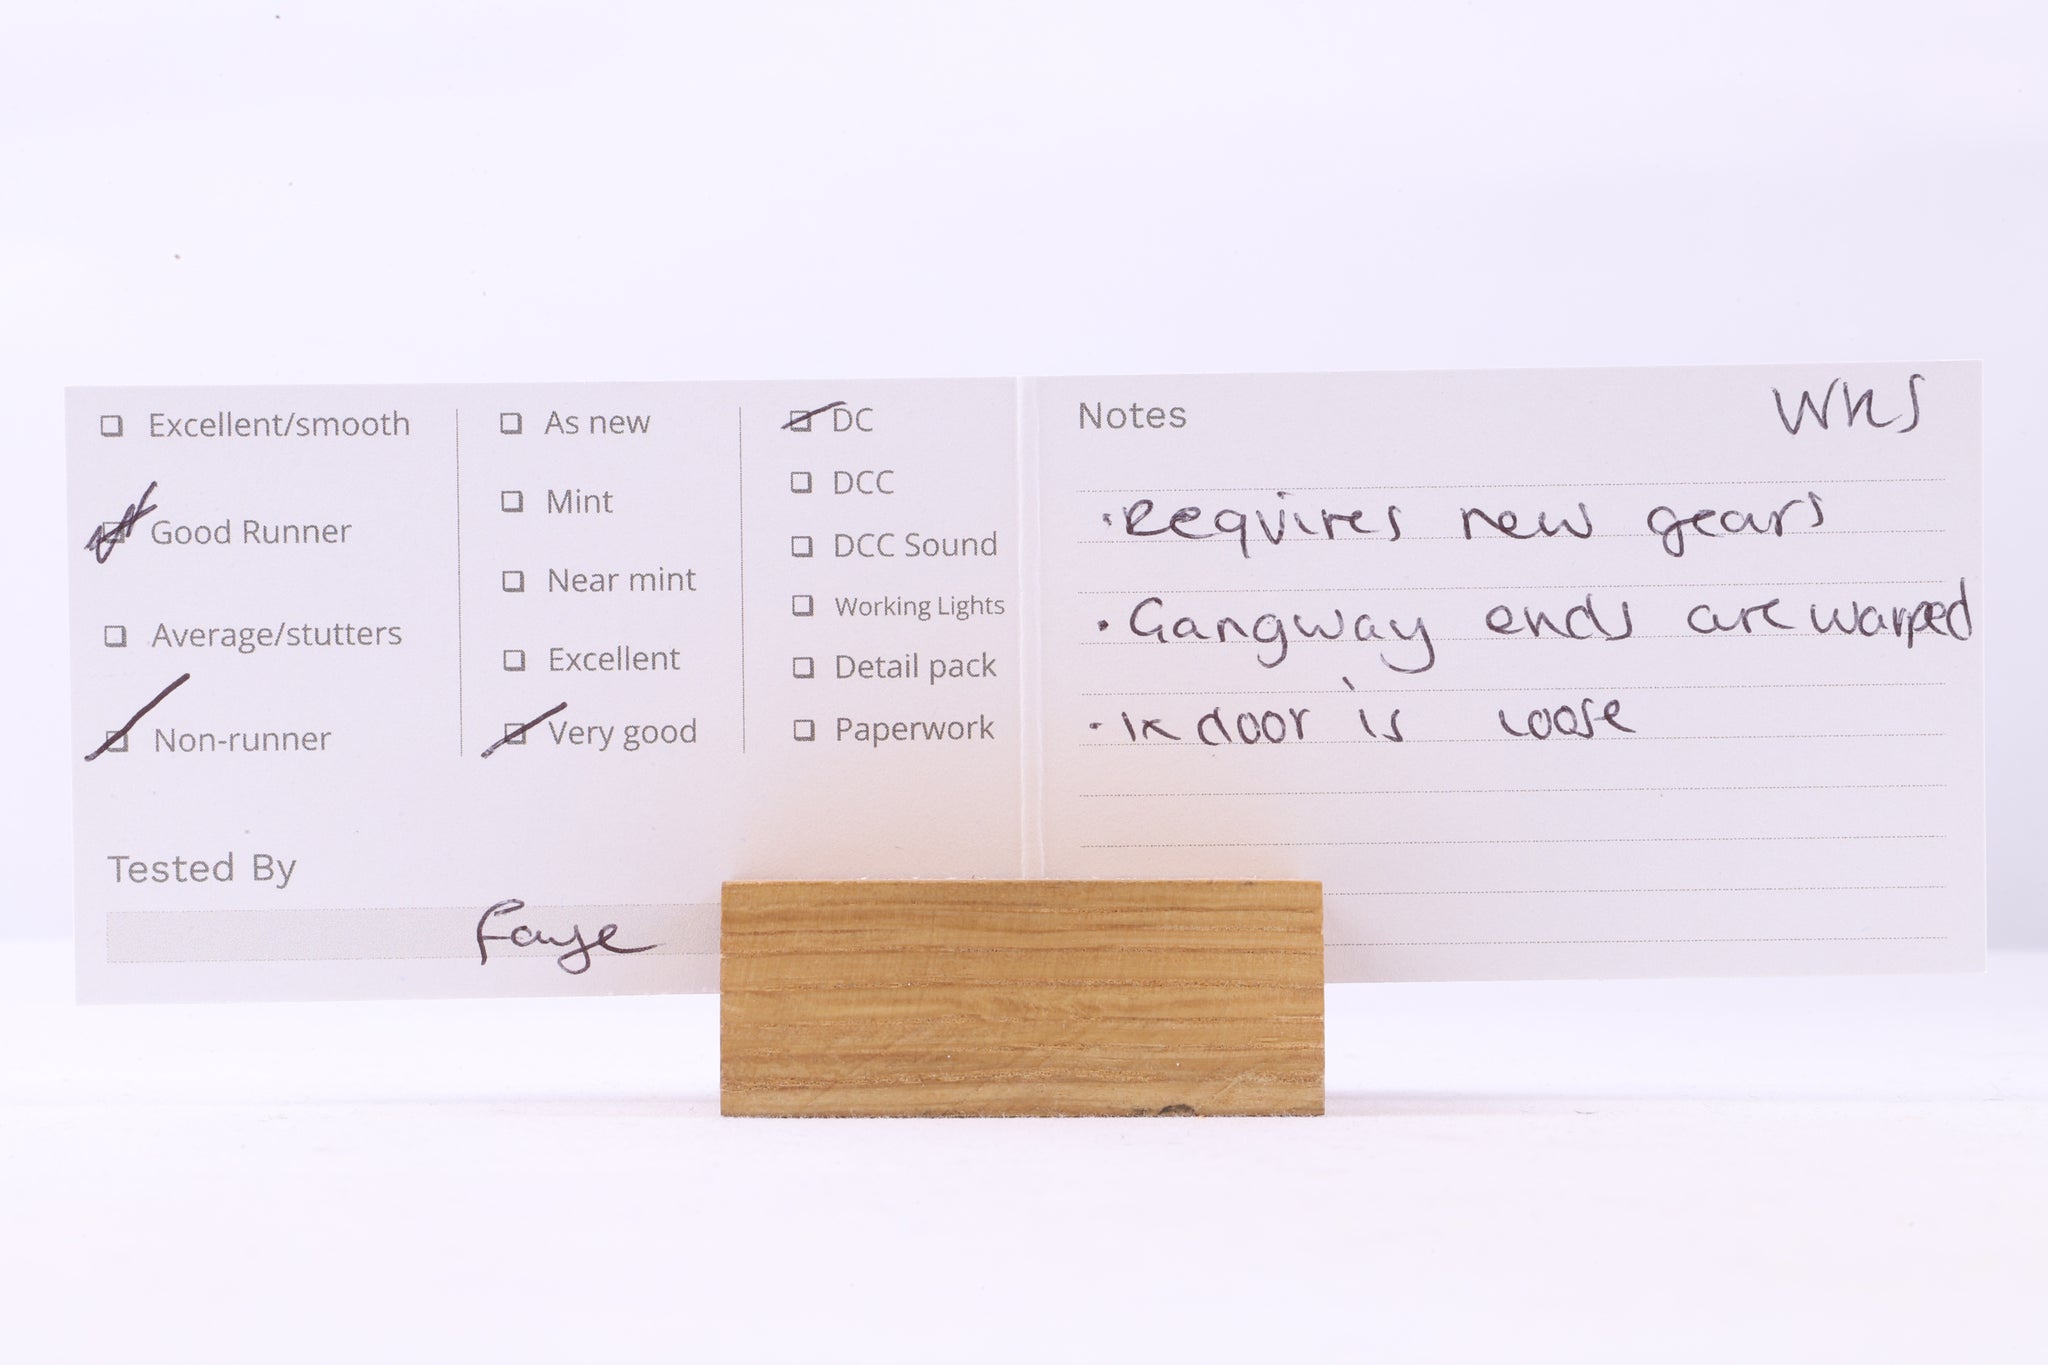 Excellent/smooth
Good Runner
Average/stutters
Non-runner
As new
Mint
Near mint
Excellent
Very good
DC
DCC
DCC Sound
Working Lights
Detail pack
Paperwork
Tested By
Faye
Notes
WKS
· Requires new gears
· Gangway ends are warped
· 1x door is loose